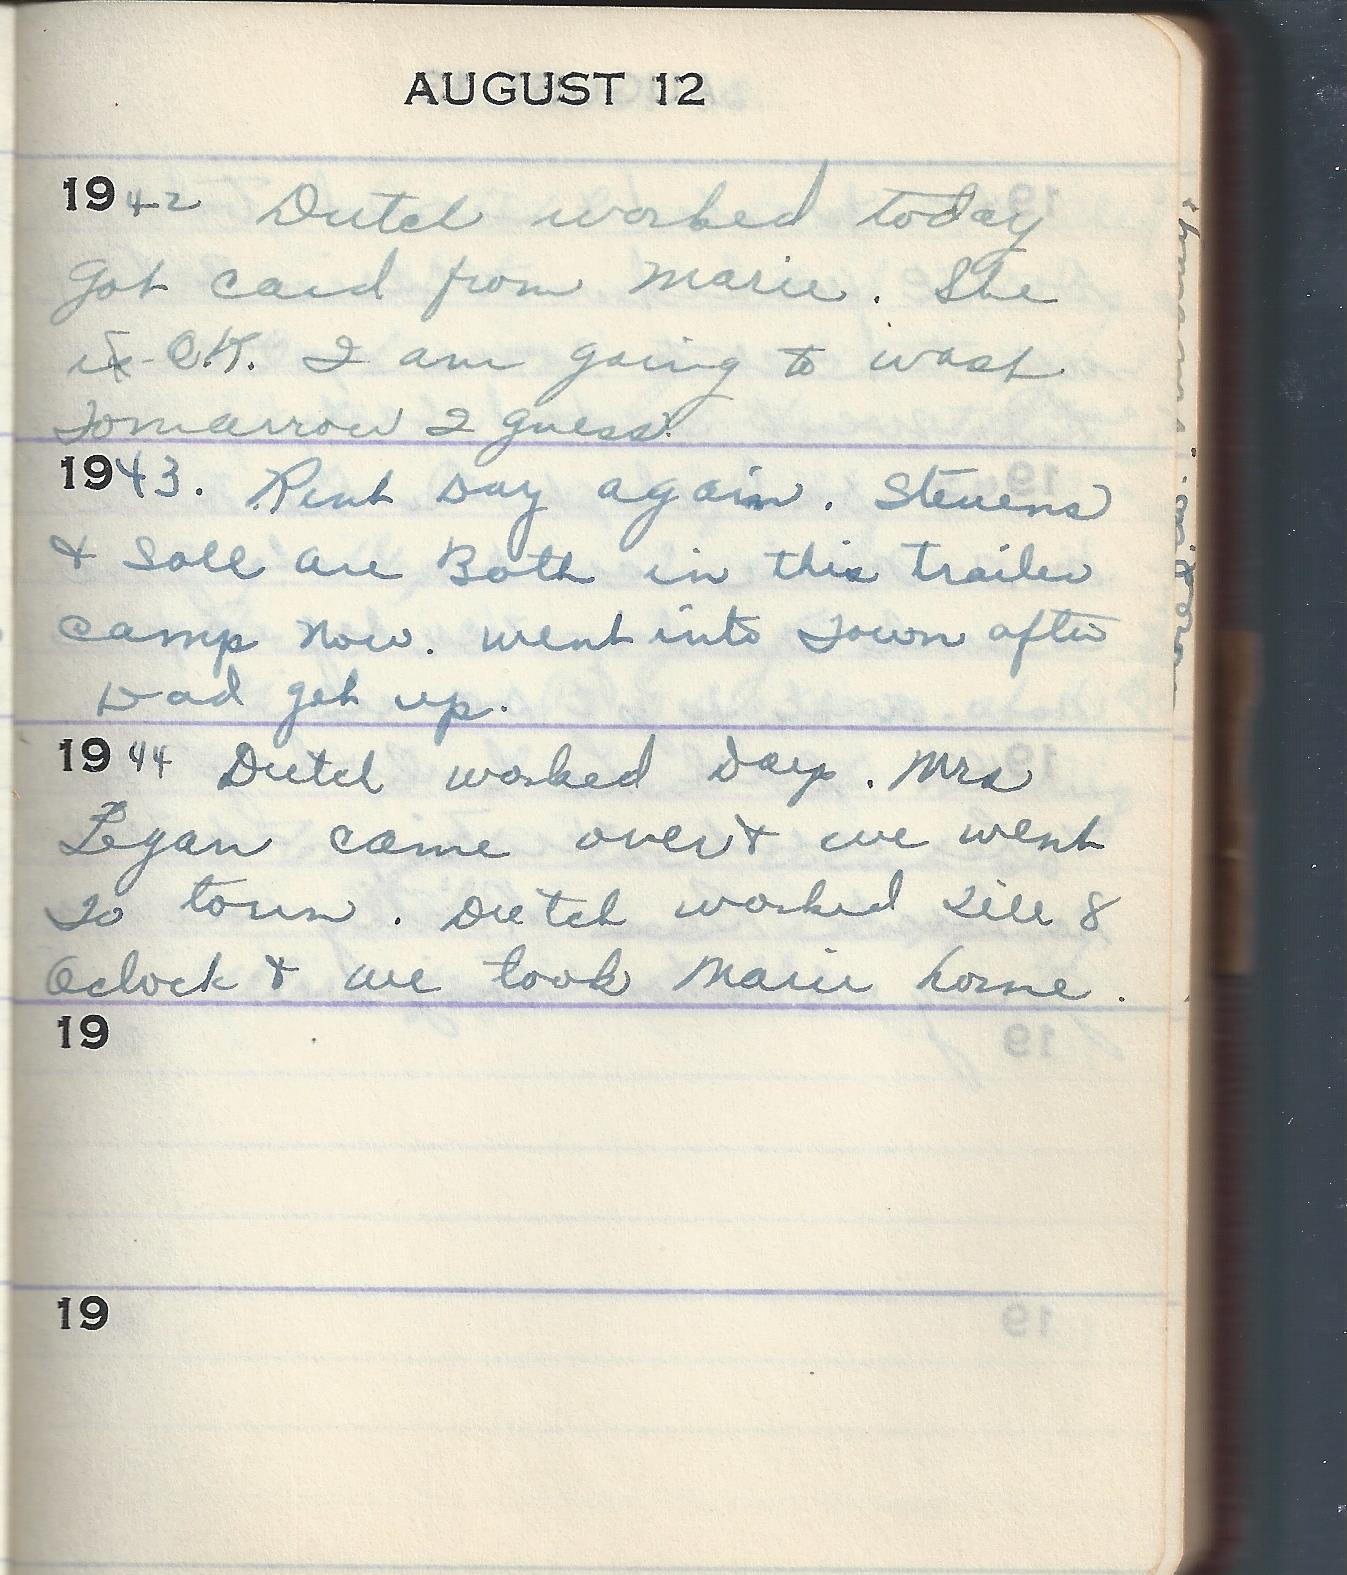 AUGUST 12
1942 Dutch worked today
Got card from Marie. She
is O.K. I am going to wash
Tomarrow I guess.
1943. Rent Day again. Stevens
& Soll are Both in this trailer
camp now. went into Town after
Dad got up.
1944 Dutch worked Days. Mrs
Legan came over & we went
To town. Dutch worked Till 8
Oclock & we took Marie home.
19
19